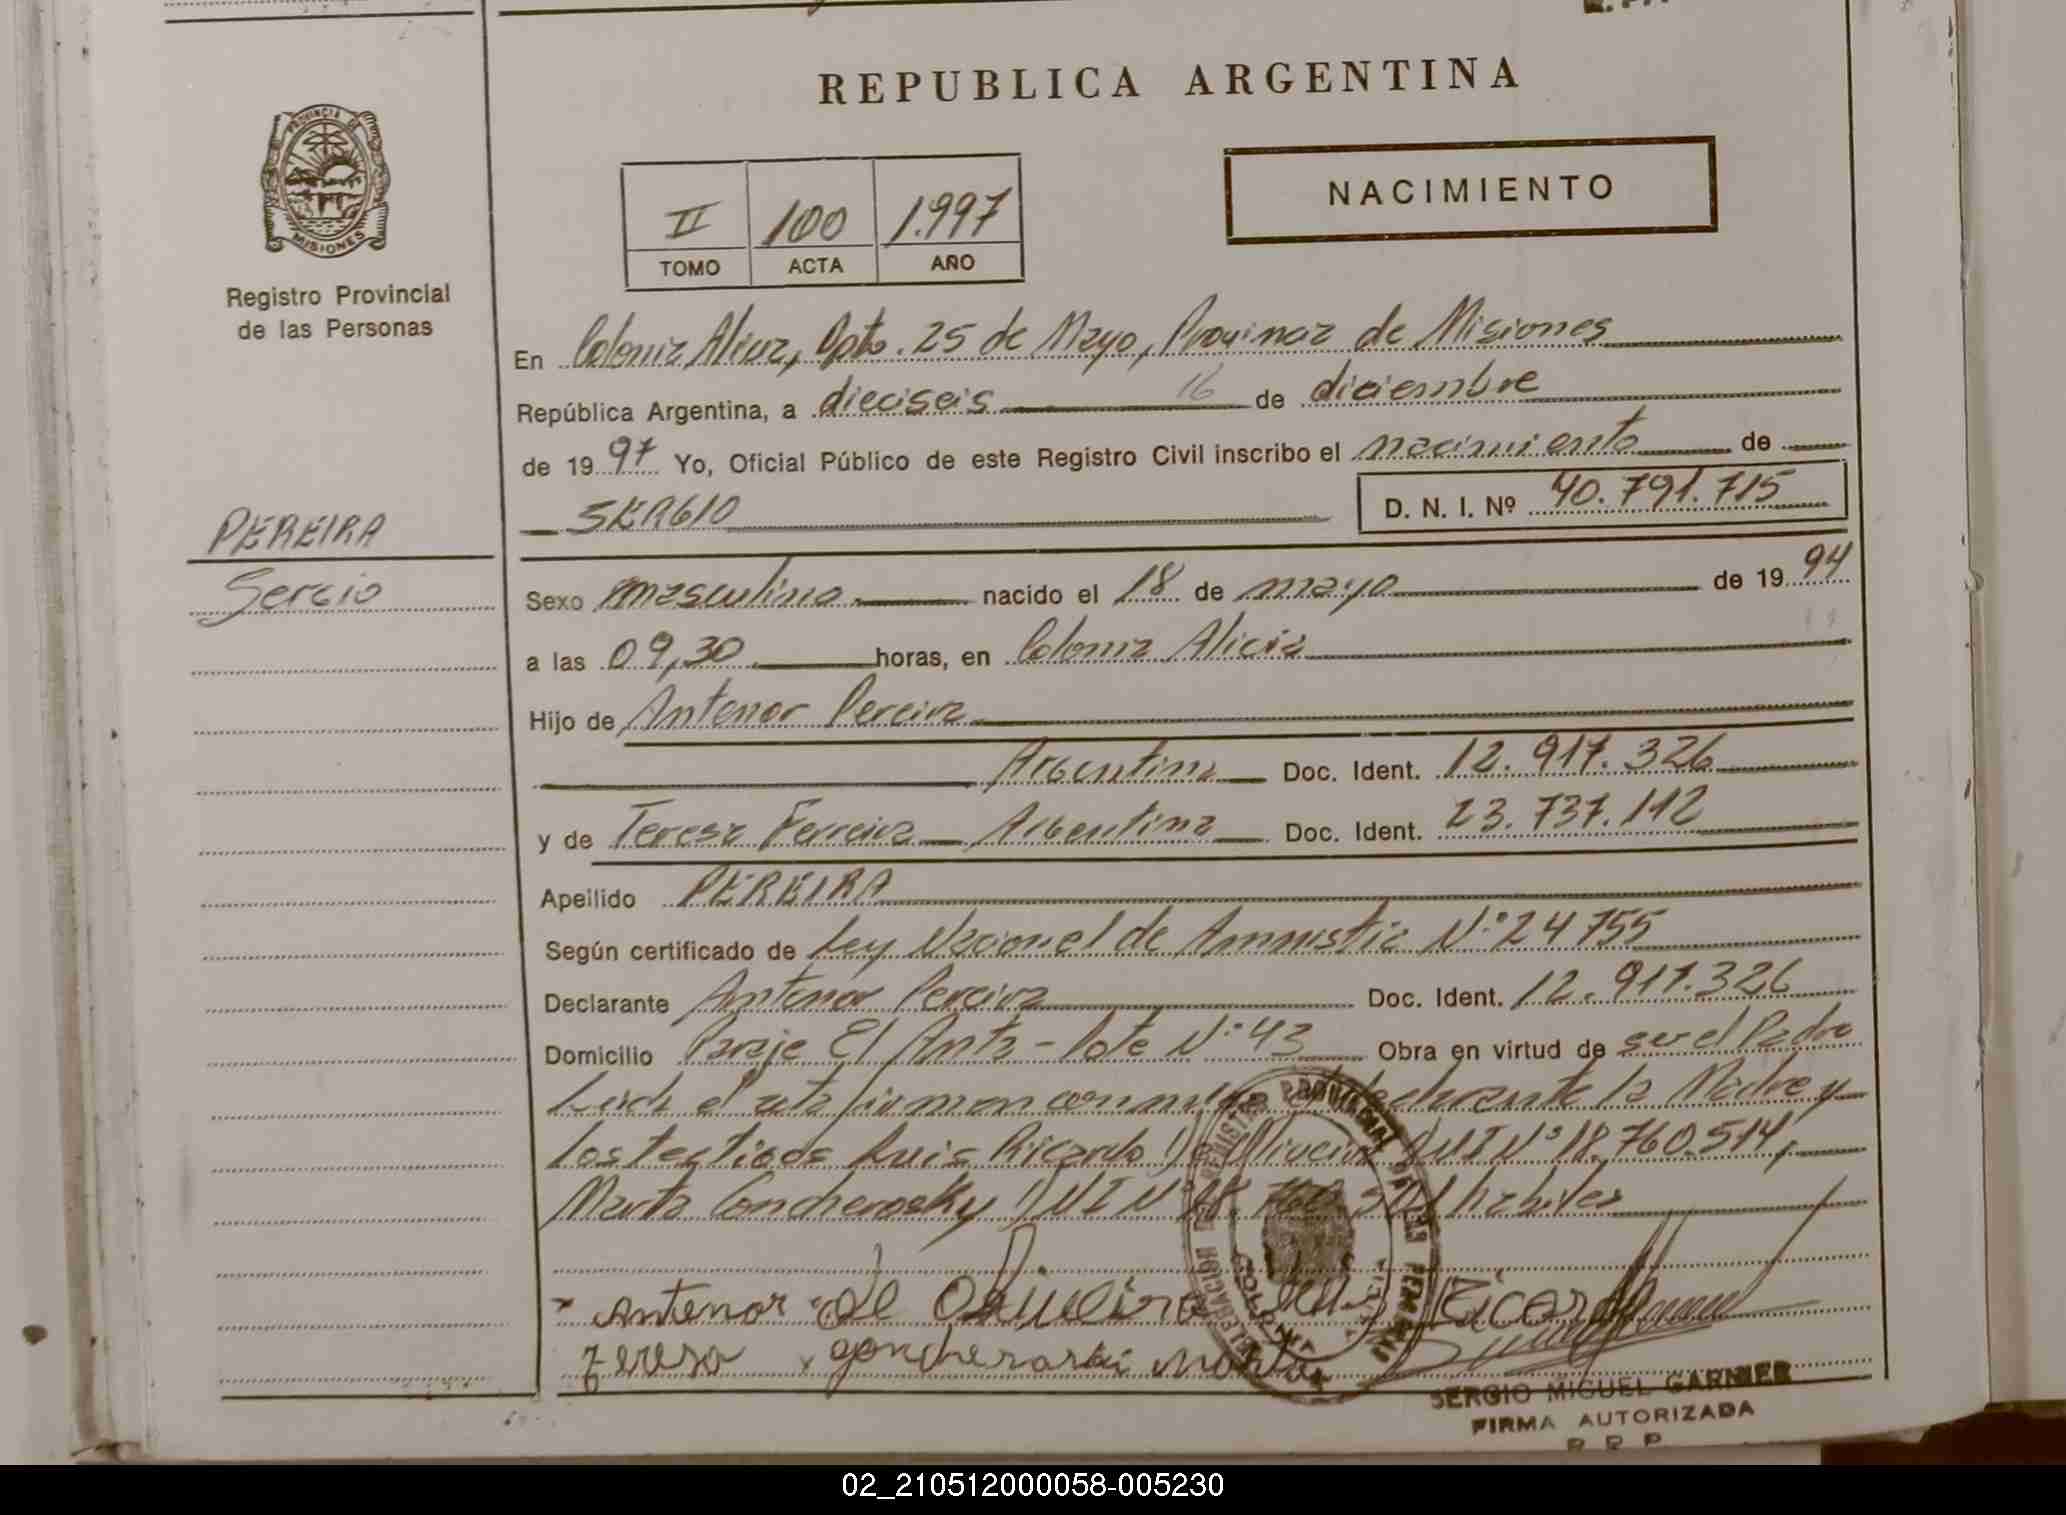 REPUBLICA ARGENTINA
PROVINCIA DE
MISIONES
Registro Provincial
de las Personas
NACIMIENTO
II 100 1.997
TOMO ACTA AÑO
En Colonia Alicia, Dpto. 25 de Mayo, Provincia de Misiones
República Argentina, a dieciseis 16 de diciembre
de 1997 Yo, Oficial Público de este Registro Civil inscribo el nacimiento de
SERGIO D. N. I. Nº 40.791.715
PEREIRA
Sergio
Sexo masculino nacido el 18 de mayo de 1994
a las 09,30 horas, en Colonia Alicia
Hijo de Antenor Pereira
Argentina Doc. Ident. 12.917.326
y de Teresa Ferreira Argentina Doc. Ident. 23.737.112
Apellido PEREIRA
Según certificado de Ley Nacional de Amnistia Nº 24755
Declarante Antenor Pereira Doc. Ident. 12.917.326
Domicilio Paraje El Anta - Lote Nº 43 Obra en virtud de ser el Padre
Leida el acta firman conmigo declarante la Madre y
los testigos Luis Ricardo DNI Nº 18.760.514,
Marta DNI Nº habiles
antenor de Oliveira Luis Ricardo
teresa goncheroski Marta
SERGIO MIGUEL GARNIER
FIRMA AUTORIZADA
R. R. P.
02_210512000058-005230